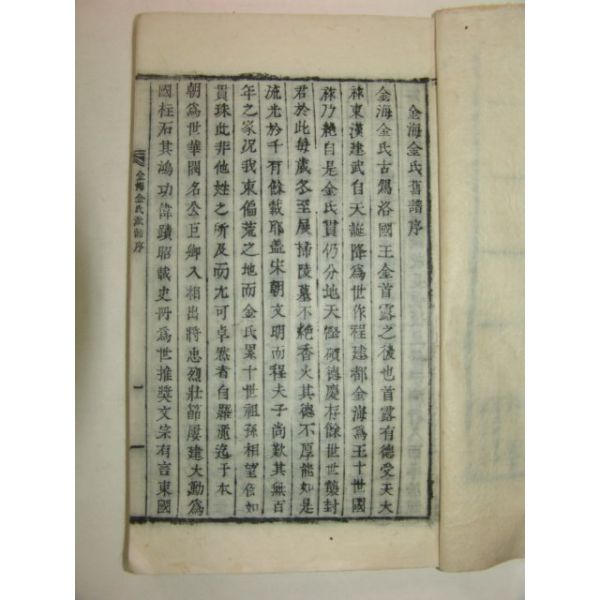 金海金氏舊譜序
金海金氏古駕洛國王金首露之後也首露有德受天大
祿東漢建武自天誕降爲世作程建都金海爲王十世國
祿乃絶自是金氏貫仍分地天監碩德慶存餘世世襲封
君於此每歲冬至展掃陵墓不絶香火其德不厚能如是
流光於千有餘載耶盖宋朝文明而程夫子尚歎其無百
年之家况我東偏荒之地而金氏累十世祖孫相望倍如
貫珠此非他姓之所及而尤可卓然者自羅麗迄于本
朝爲世華閥名公巨卿入相出將忠烈壯節屢建大勳爲
國柱石其鴻功偉蹟昭載史冊爲世推奬文宗有言東國
金海金氏 譜序